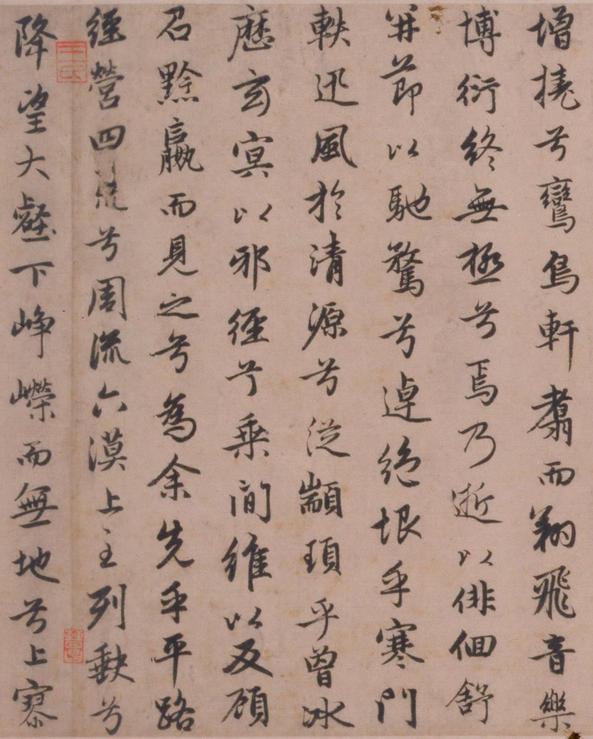 增撓兮鸞鳥軒翥而翔飛音樂
博衍終無極兮焉乃逝以俳佪舒
并節以馳騖兮逴絶垠乎寒門
軼迅風於清源兮從顓頊乎曾冰
歷玄冥以邪徑兮乘間維以反顧
召黔嬴而見之兮為余先乎平路
經營四荒兮周流六漠上至列缺兮
降望大壑下崢嶸而無地兮上寥